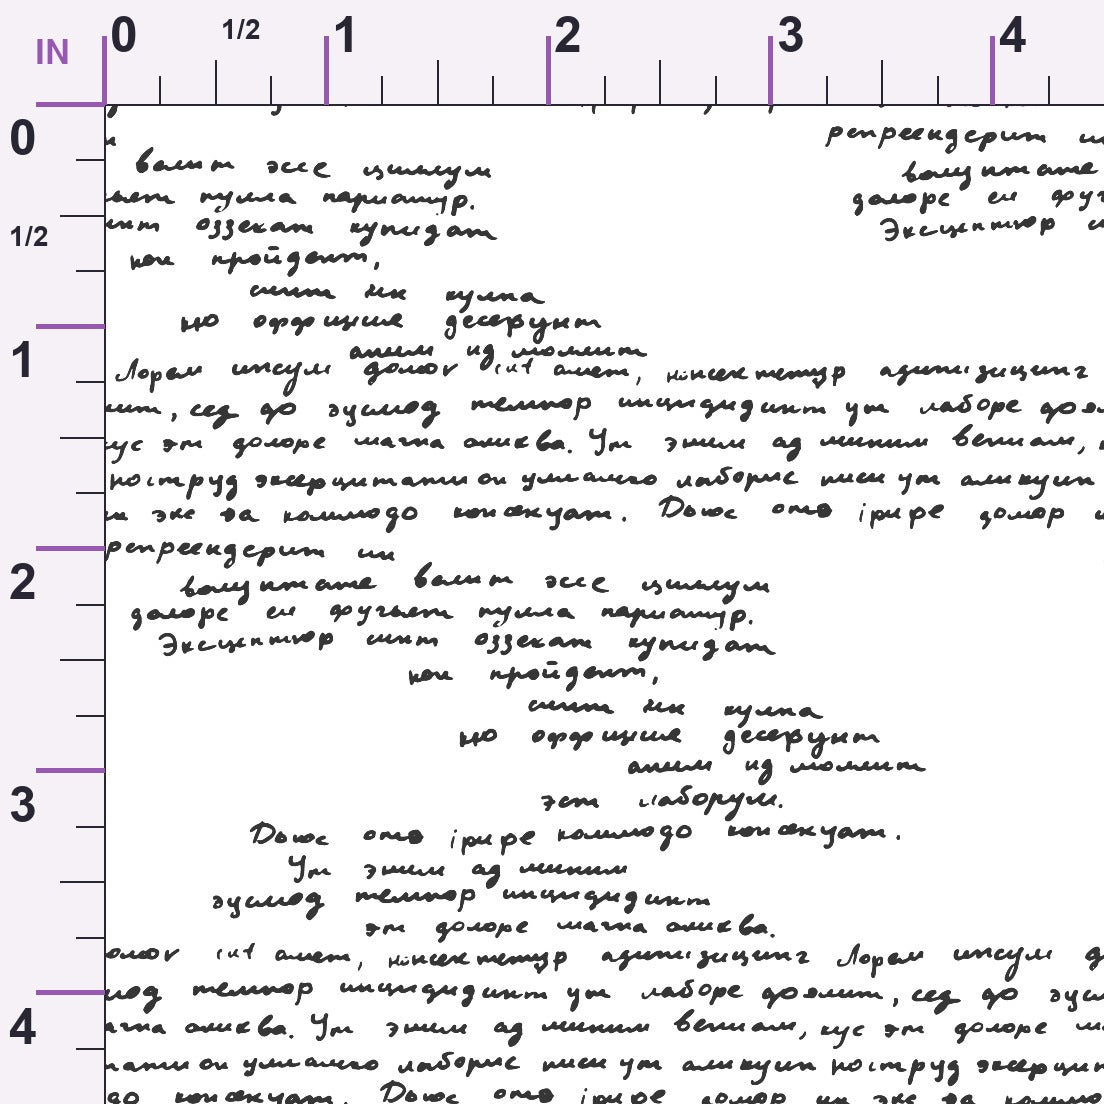 IN 0 1/2 1 2 3 4
0
репреендерит
велит эссе циллум волуптате
нулла париатур. долоре еу
1/2
оззекат купидат Эксцептеур
нон пройдент,
сунт ин кулпа
оффициа десерунт
1
аним ид моллит
Лорем ипсум долор сит амет, консектетур адиписицинг
сед до эусмод темпор инцидидунт ут лаборе
эт долоре магна аликва. Ут эним ад миним вениам,
ноструд эксерцитатион улламко лаборис ниси ут аликуип
экс эа коммодо консекуат. Дьюс ауте iруре долор
репреендерит ин
2
волуптате велит эссе циллум
долоре еу фугьет нулла париатур.
Эксцептеур синт оззекат купидат
нон пройдент,
сунт ин кулпа
оффициа десерунт
аним ид моллит
3
эст лаборум.
Дьюс ауте iруре коммодо консекуат.
Ут эним ад миним
эусмод темпор инцидидунт
эт долоре магна аликва.
сит амет, консектетур адиписицинг Лорем ипсум
темпор инцидидунт ут лаборе доэлит, сед до
4
аликва. Ут эним ад миним вениам, кус эт долоре
улламко лаборис ниси ут аликуип ноструд
консекуат. Дьюс ауте iруре долор ин экс эа